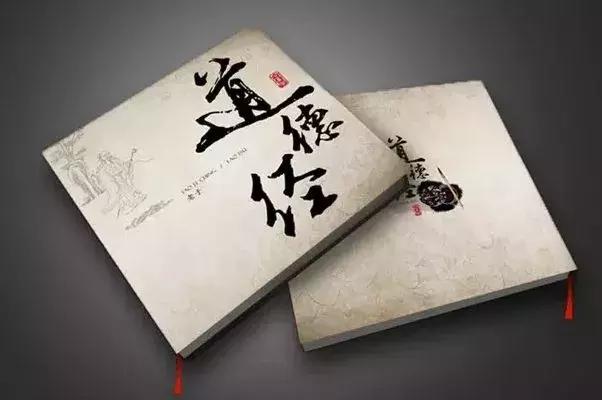 道德经
TAO TE CHING / LAO ZI
老子
道德经